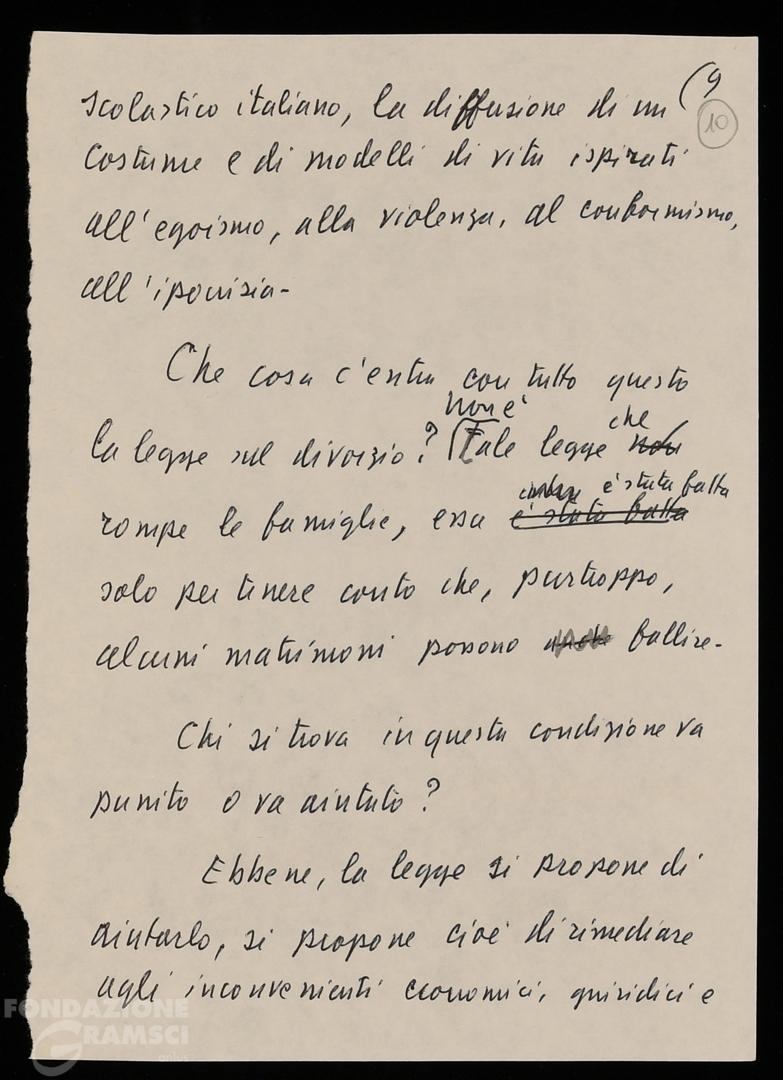 (9
10
scolastico italiano, la diffusione di un
costume e di modelli di vita ispirati
all'egoismo, alla violenza, al conformismo,
all'ipocrisia -
Che cosa c'entra con tutto questo
non è che
la legge sul divorzio? Tale legge non
è stata fatta
rompe le famiglie, essa è stata fatta
solo per tenere conto che, purtroppo,
alcuni matrimoni possono fallire -
Chi si trova in questa condizione va
punito o va aiutato?
Ebbene, la legge si propone di
aiutarlo, si propone cioè di rimediare
agli inconvenienti economici, giuridici e
FONDAZIONE
GRAMSCI
onlus